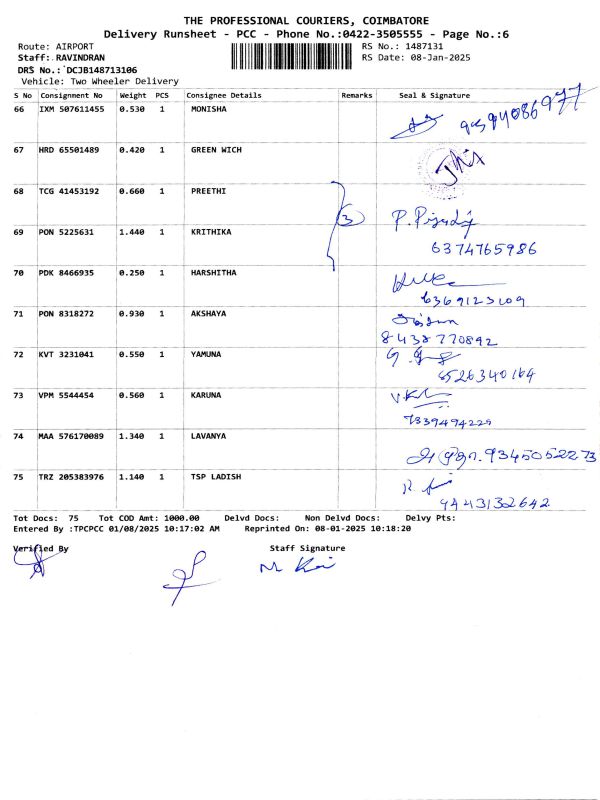 THE PROFESSIONAL COURIERS, COIMBATORE
Delivery Runsheet - PCC - Phone No.:0422-3505555 - Page No.:6
Route: AIRPORT RS No.: 1487131
Staff: RAVINDRAN RS Date: 08-Jan-2025
DRS No.: DCJB148713106
Vehicle: Two Wheeler Delivery
S No Consignment No Weight PCS Consignee Details Remarks Seal & Signature
66 IXM 507611455 0.530 1 MONISHA
67 HRD 65501489 0.420 1 GREEN WICH
68 TCG 41453192 0.660 1 PREETHI
3
69 PON 5225631 1.440 1 KRITHIKA
6374765986
70 PDK 8466935 0.250 1 HARSHITHA
71 PON 8318272 0.930 1 AKSHAYA
8438770892
72 KVT 3231041 0.550 1 YAMUNA
8526340164
73 VPM 5544454 0.560 1 KARUNA
7339494229
74 MAA 576170089 1.340 1 LAVANYA
9345052273
75 TRZ 205383976 1.140 1 TSP LADISH
9443132642
Tot Docs: 75 Tot COD Amt: 1000.00 Delvd Docs: Non Delvd Docs: Delvy Pts:
Entered By :TPCPCC 01/08/2025 10:17:02 AM Reprinted On: 08-01-2025 10:18:20
Verified By Staff Signature